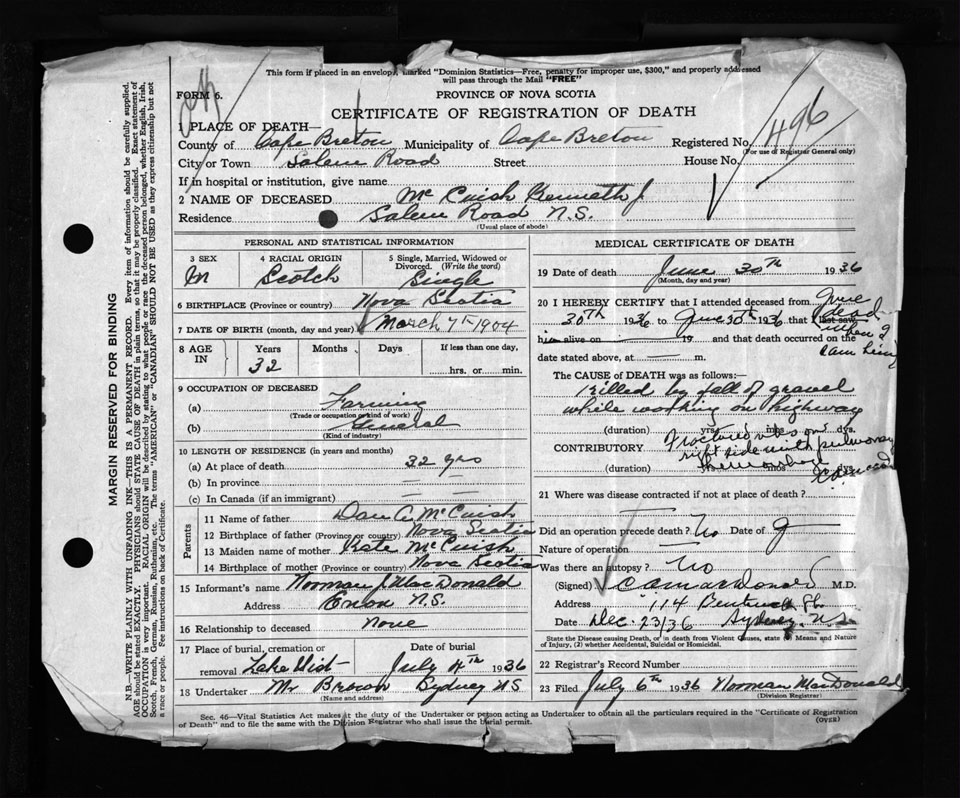 This form if placed in an envelope, marked "Dominion Statistics—Free, penalty for improper use, $300," and properly addressed
will pass through the Mail "FREE"
FORM 6.
PROVINCE OF NOVA SCOTIA
CERTIFICATE OF REGISTRATION OF DEATH
1 PLACE OF DEATH—
County of Cape Breton Municipality of Cape Breton Registered No. 496
(For use of Registrar General only)
City or Town Salem Road Street House No.
If in hospital or institution, give name
2 NAME OF DECEASED McCuish Kenneth J.
Residence Salem Road N.S.
(Usual place of abode)
PERSONAL AND STATISTICAL INFORMATION
3 SEX
M
4 RACIAL ORIGIN
Scotch
5 Single, Married, Widowed or
Divorced. (Write the word)
Single
6 BIRTHPLACE (Province or country) Nova Scotia
7 DATE OF BIRTH (month, day and year) March 7th 1904
8 AGE IN
Years
32
Months
Days
If less than one day,
hrs. or min.
9 OCCUPATION OF DECEASED
(a) Farming
(Trade or occupation or kind of work)
(b) General
(Kind of industry)
10 LENGTH OF RESIDENCE (in years and months)
(a) At place of death 32 yrs
(b) In province
(c) In Canada (if an immigrant)
Parents
11 Name of father Dan A. McCuish
12 Birthplace of father (Province or country) Nova Scotia
13 Maiden name of mother Kate McCuish
14 Birthplace of mother (Province or country) Nova Scotia
15 Informant's name Norman J. MacDonald
Address Enon N.S.
16 Relationship to deceased None
17 Place of burial, cremation or
removal Lake Uist
Date of burial
July 4th 1936
18 Undertaker Mr Brown Sydney NS
(Name and address)
MEDICAL CERTIFICATE OF DEATH
19 Date of death June 30th 1936
(Month, day and year)
20 I HEREBY CERTIFY that I attended deceased from June
30th 1936 to June 30th 1936 that I last saw
dead when I
him alive on 19 and that death occurred on the
date stated above, at — m.
The CAUSE of DEATH was as follows:
Killed by fall of gravel
while working on highway
(duration) yrs. mos. dys.
CONTRIBUTORY Fractured ribs on
right side with pulmonary
hemorrhage
(duration) yrs. mos. dys.
21 Where was disease contracted if not at place of death?
Did an operation precede death? No Date of
Nature of operation
Was there an autopsy? No
(Signed) M.D.
Address 114 St.
Date Dec. 23/36 Sydney, N.S.
State the Disease causing Death, or in death from Violent Causes, state (1) Means and Nature
of Injury, (2) whether Accidental, Suicidal or Homicidal.
22 Registrar's Record Number
23 Filed July 6th 1936 Norman MacDonald
(Division Registrar)
Sec. 46—Vital Statistics Act makes it the duty of the Undertaker or person acting as Undertaker to obtain all the particulars required in the "Certificate of Registration
of Death" and to file the same with the Division Registrar who shall issue the burial permit.
(OVER)
MARGIN RESERVED FOR BINDING
N.B.—WRITE PLAINLY WITH UNFADING INK—THIS IS A PERMANENT RECORD. Every item of information should be carefully supplied.
AGE should be stated EXACTLY. PHYSICIANS should STATE CAUSE OF DEATH in plain terms, so that it may be properly classified. Exact statement of
OCCUPATION is very important. RACIAL ORIGIN will be described by stating to what people or race the deceased person belonged, whether English, Irish,
Scotch, French, German, Russian, Ruthenian, etc. The terms "AMERICAN" or "CANADIAN" SHOULD NOT BE USED as they express citizenship but not
a race or people. See instructions on back of Certificate.